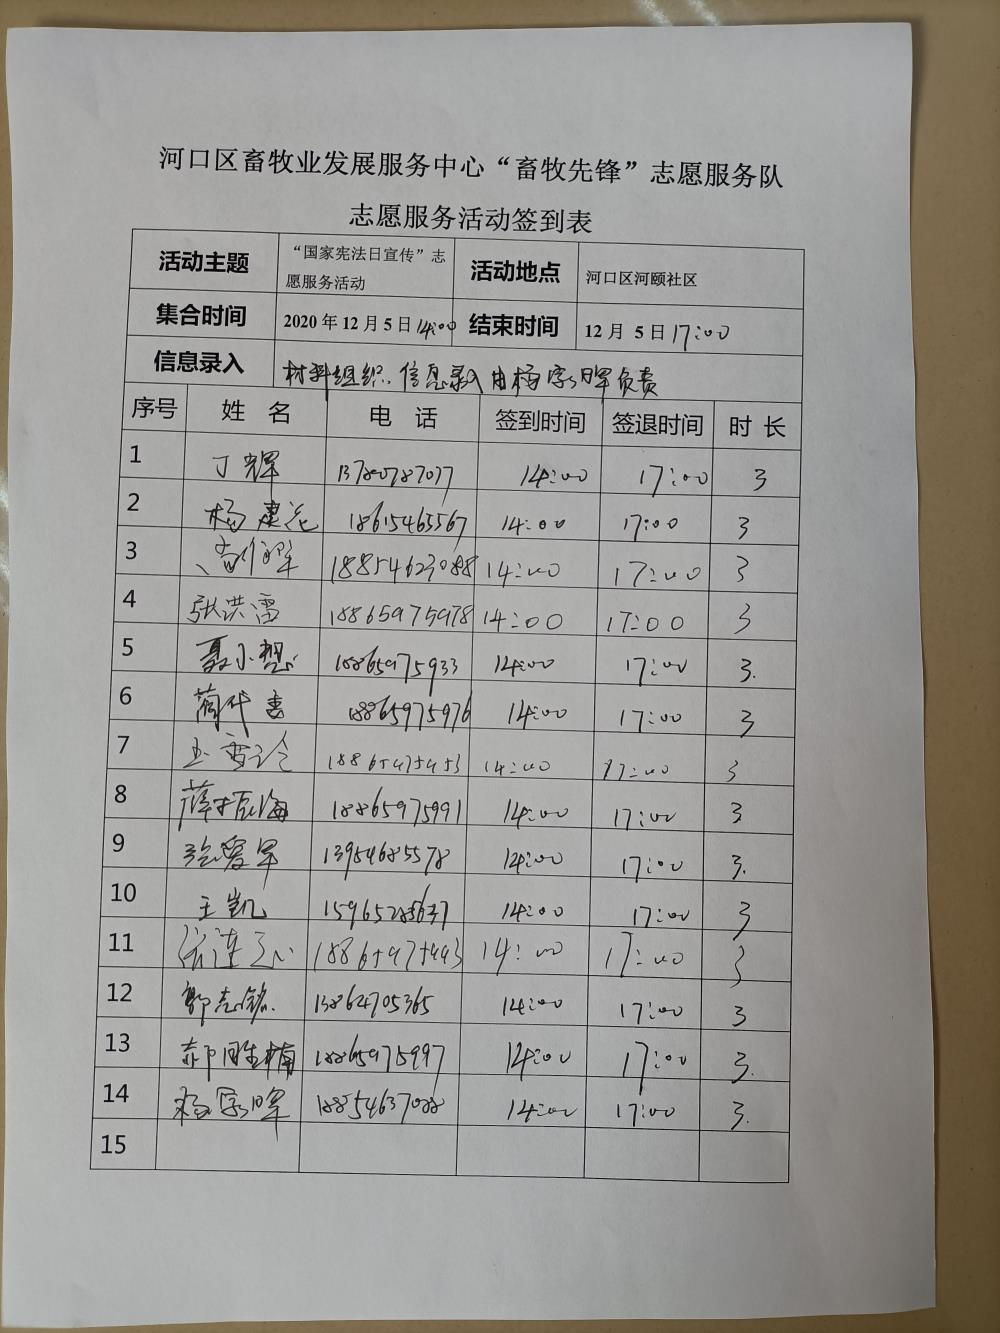 河口区畜牧业发展服务中心“畜牧先锋”志愿服务队
志愿服务活动签到表
活动主题 “国家宪法日宣传”志愿服务活动 活动地点 河口区河颐社区
集合时间 2020年12月5日14:00 结束时间 12月 5日17:00
信息录入 材料组织、信息录入由杨字晖负责
序号 姓 名 电 话 签到时间 签退时间 时 长
1 丁辉 14:00 17:00 3
2 杨建花 18615465567 14:00 17:00 3
3 18854623088 14:00 17:00 3
4 张洪雷 18865975978 14:00 17:00 3
5 聂小想 18865975933 14:00 17:00 3.
6 蔺代书 18865975976 14:00 17:00 3
7 14:00 17:00 3
8 薛振海 18865975991 14:00 17:00 3
9 张爱军 13954685578 14:00 17:00 3.
10 王凯 14:00 17:00 3
11 张连 18865975993 14:00 17:00 3
12 郭志铭 13864705365 14:00 17:00 3
13 18865975997 14:00 17:00 3.
14 杨字晖 18854637088 14:00 17:00 3.
15